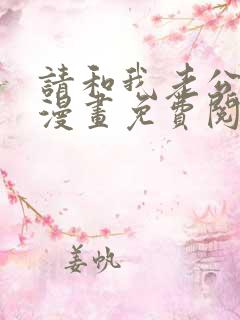 請和我老公
漫畫免費閱
姜帆